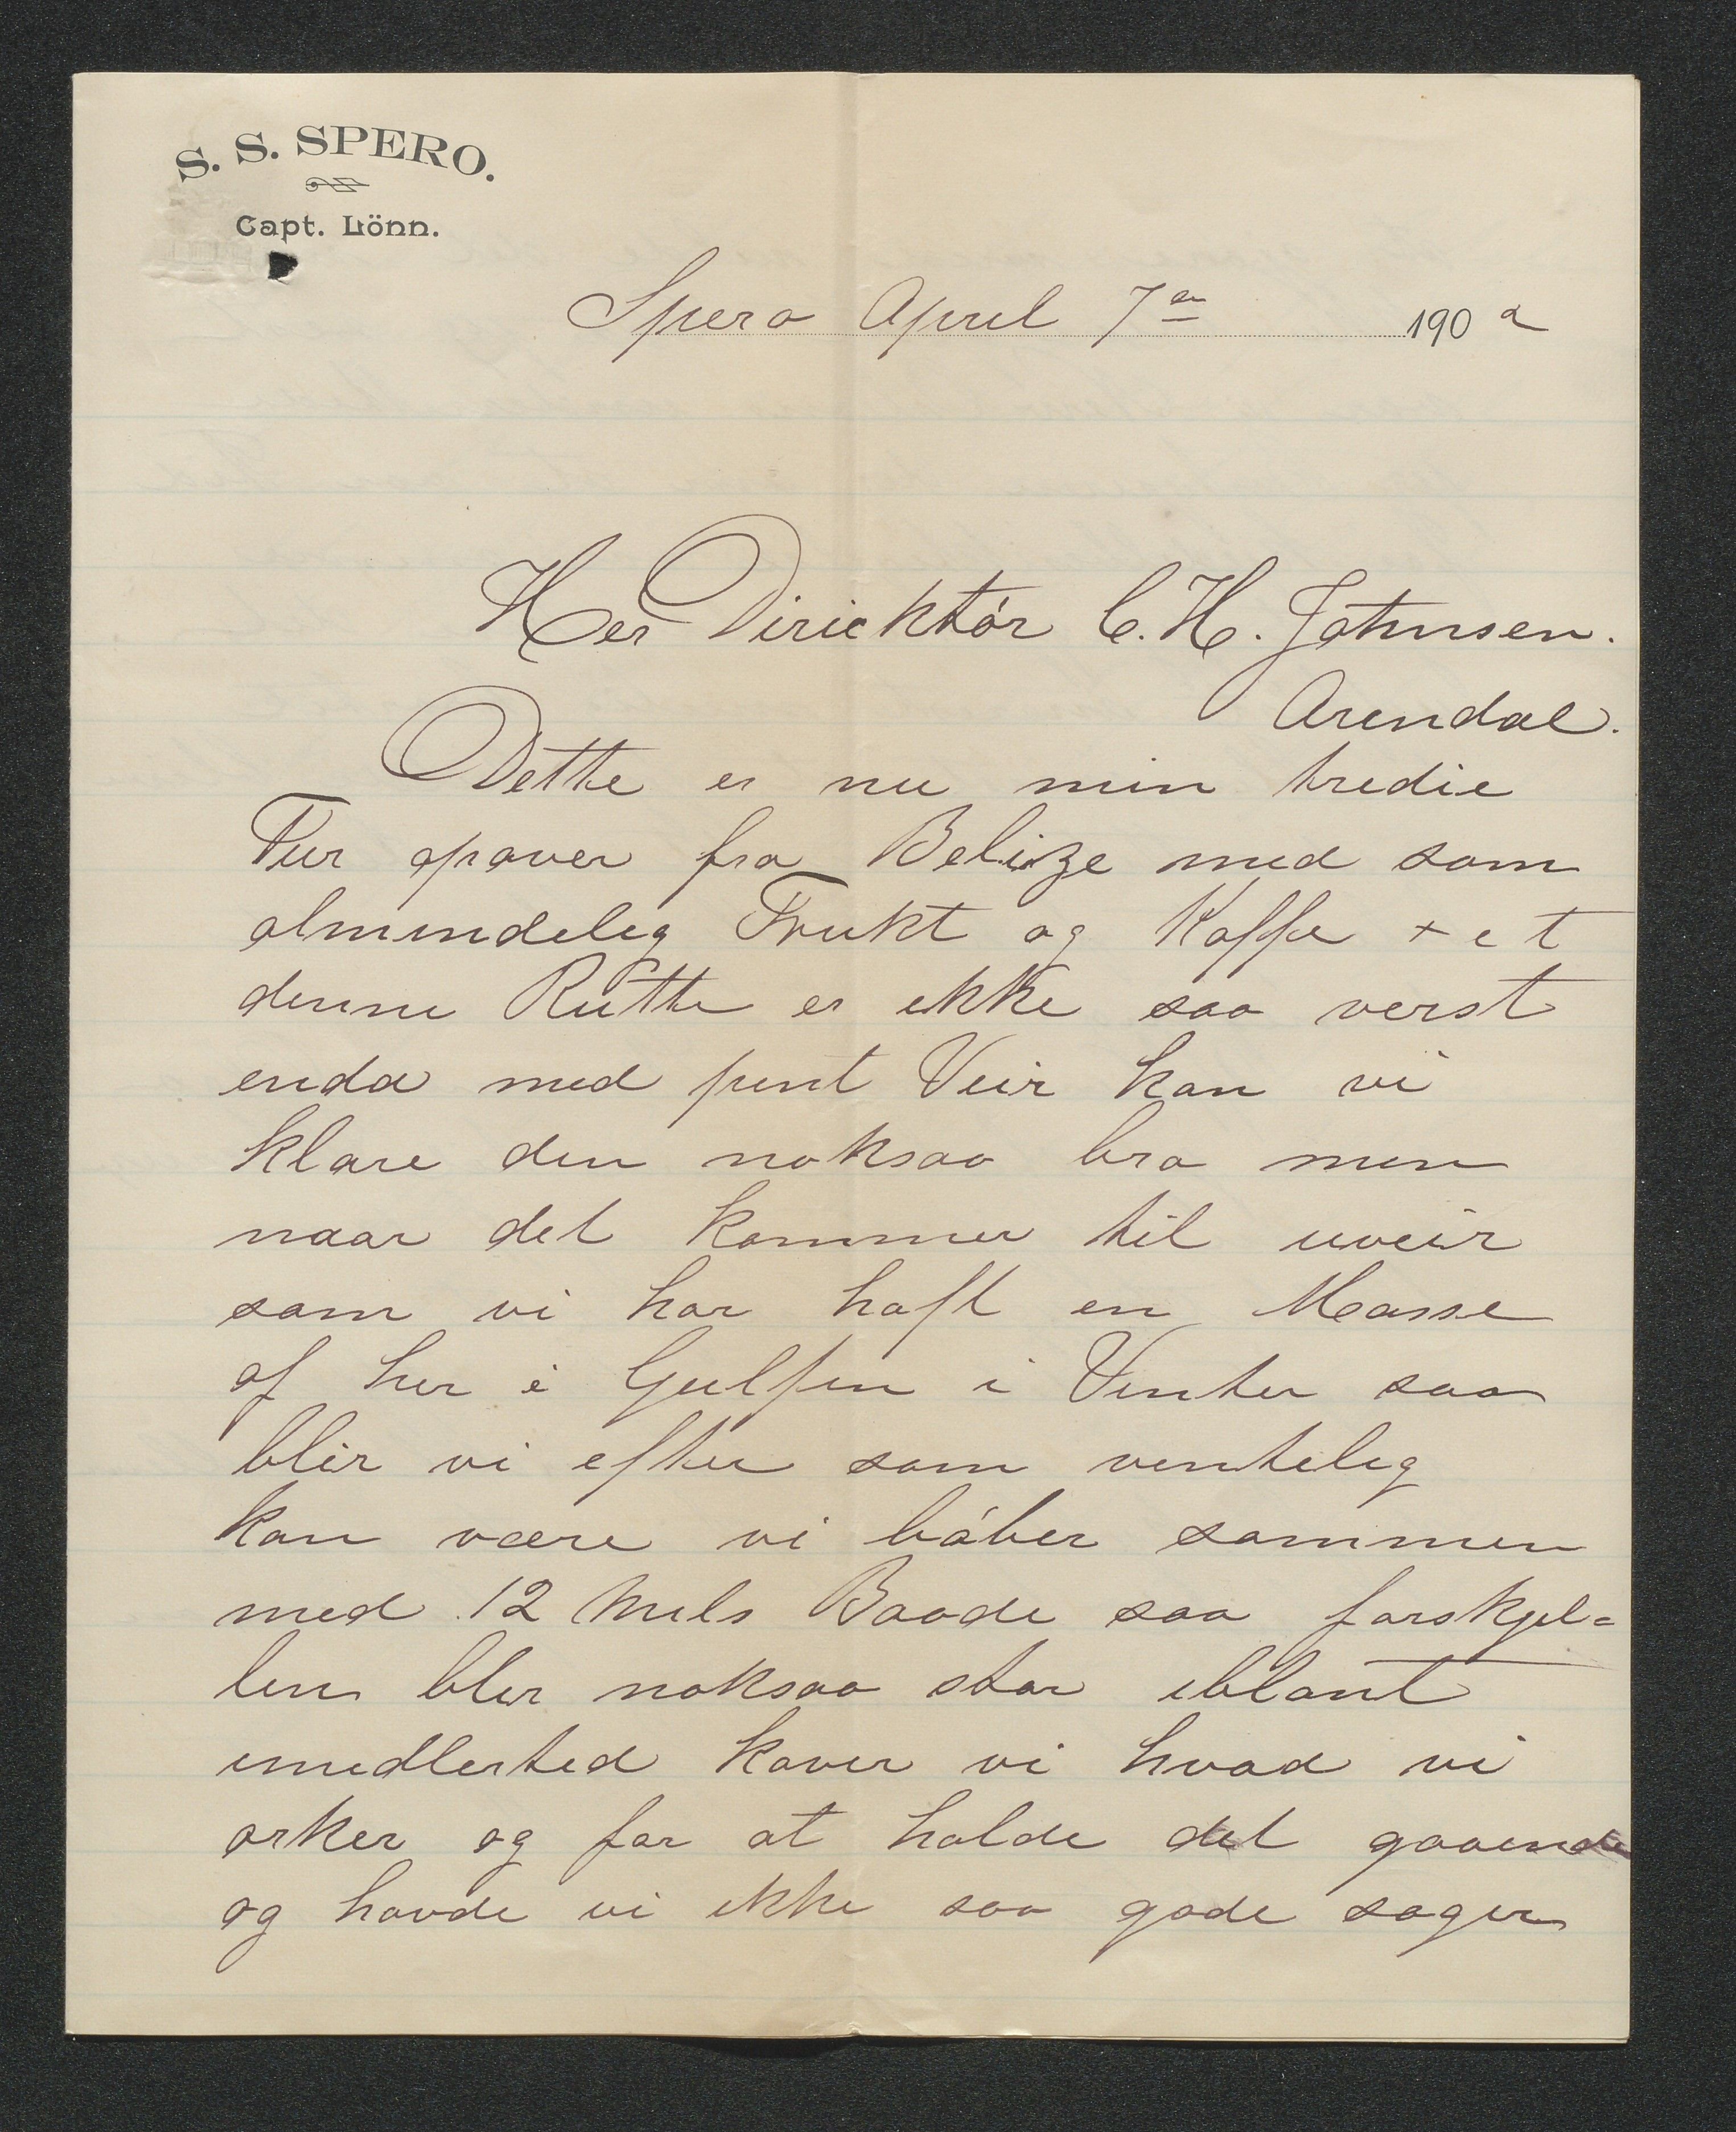 S. S. SPERO.
Capt. Lönn.
Spero April 7de 1902
Her Diricktór C. H. Johnsen.
Arendal.
Dette er nu min tredie
Tur opover fra Belize med som
almindelig Frukt og Kaffe + et
denne Rutte er ikke saa verst
enda med pent Veir kan vi
klare den noksaa bra men
naar det kommer til uveir
som vi har haft en Masse
af her i Gulfen i Vinter saa
blir vi efter som ventelig
kan være vi lóber sammen
med 12 Mils Baade saa forskjel=
len bler noksaa stor iblant
imedlertid kover vi hvad vi
orker og for at holde det gaaende
og havde vi ikke saa gode sager